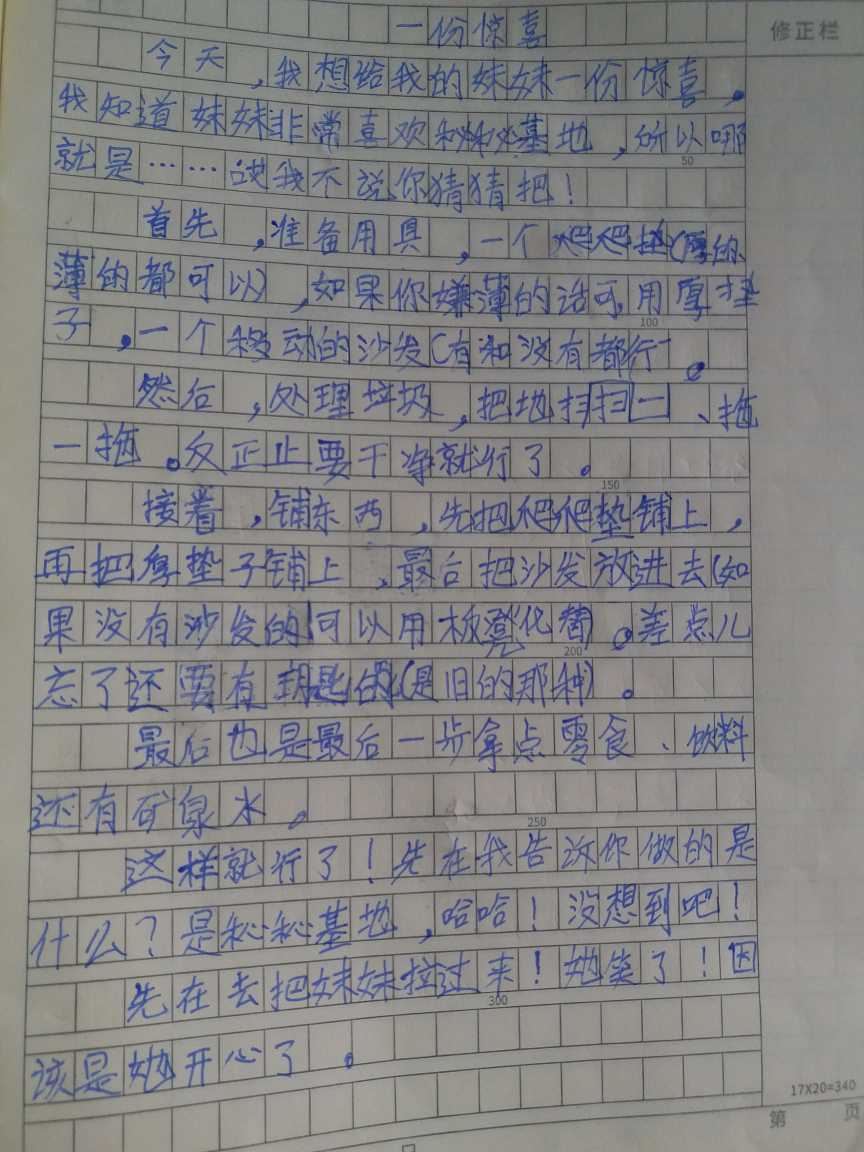 修正栏
一份惊喜
今天，我想给我的妹妹一份惊喜。
我知道妹妹非常喜欢秘秘基地，所以哪
50
就是……哎我不说你猜猜把！
首先，准备用具，一个爬爬垫（厚的、
薄的都可以），如果你嫌薄的话可用厚垫
100
子，一个移动的沙发（有和没有都行）。
然后，处理垃圾，把地扫扫一、拖
一拖。反正止要干净就行了。
150
接着，铺东西，先把爬爬垫铺上，
再把厚垫子铺上，最后把沙发放进去（如
果没有沙发的可以用板凳化替）。差点儿
200
忘了还要有玥匙的（是旧的那种）。
最后也是最后一步拿点零食、饮料
还有矿泉水。
250
这样就行了！先在我告诉你做的是
什么？是秘秘基地，哈哈！没想到吧！
先在去把妹妹拉过来！她笑了！因
300
该是她开心了。
17X20=340
第 页